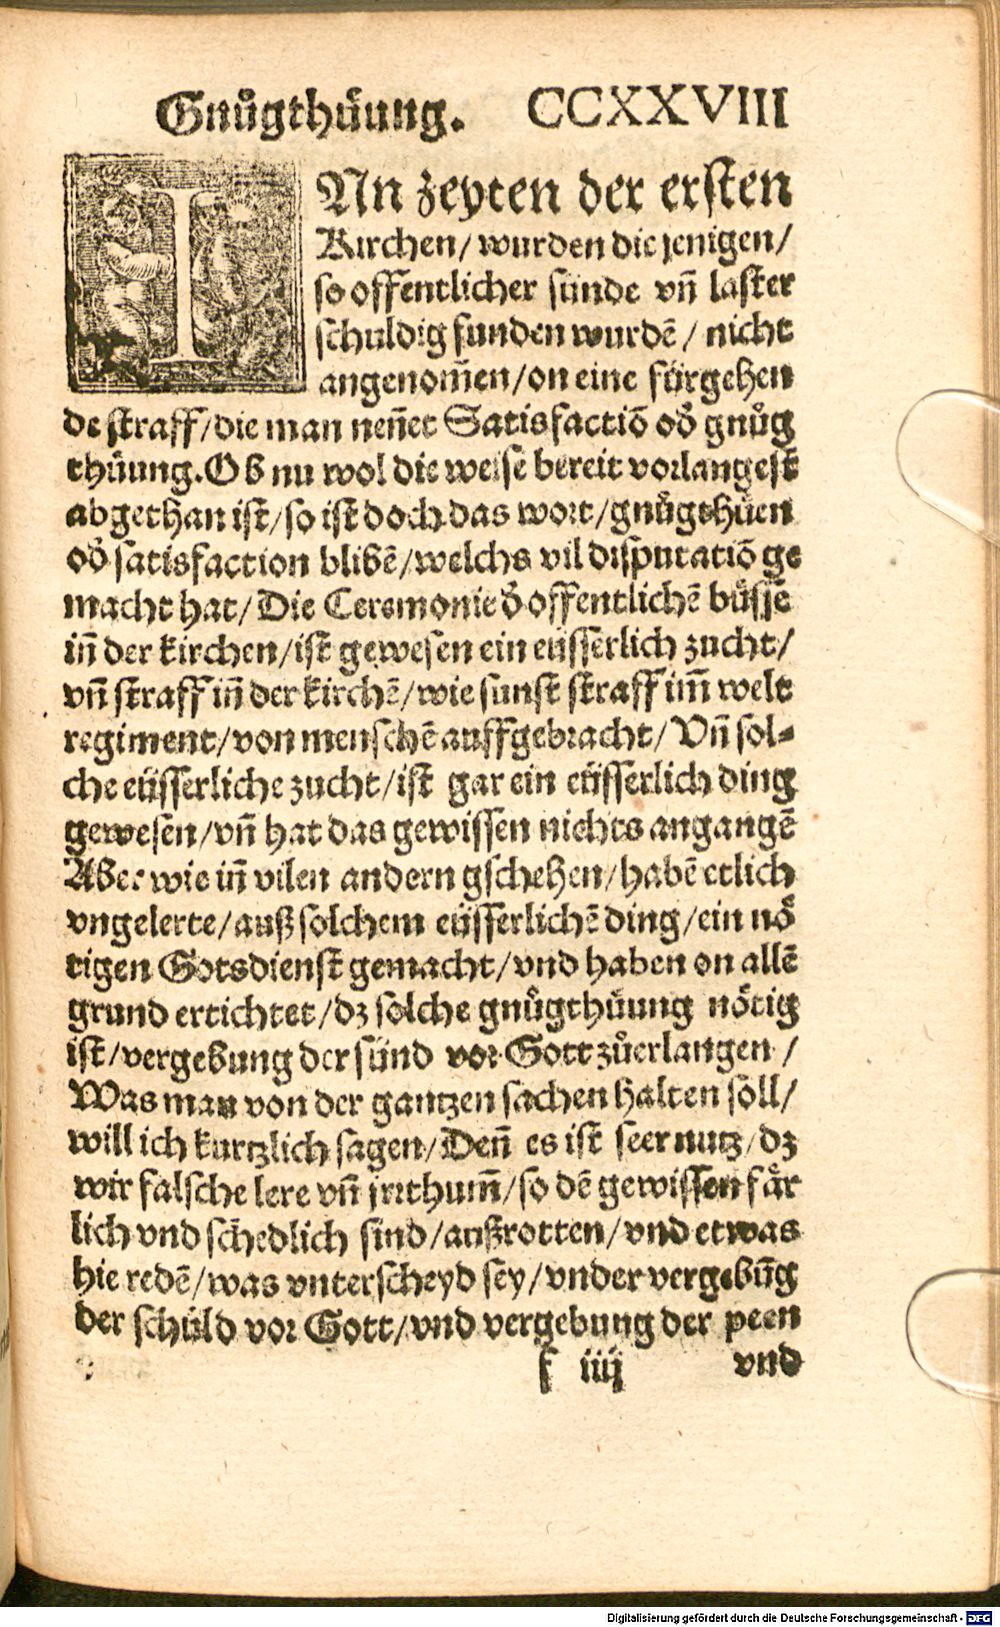 Gnuͤgthuͤung. CCXXVIII
INn zeyten der ersten
Kirchen/ wurden die jenigen/
so offentlicher sünde vn̄ laster
schuldig funden wurdē/ nicht
angenom̄en/on eine fürgehen
de straff/die man nen̄et Satisfactiō od̾ gnuͤg
thuͤung. Ob nu wol die weise bereit vorlangest
abgethan ist/so ist doch das wort/gnuͤgthuͤen
od̾ satisfaction blibē/welchs vil disputatiō ge
macht hat/Die Ceremonie d̾ offentlichē buͤsse
in̄ der kirchen/ist gewesen ein eüsserlich zucht/
vn̄ straff in̄ der kirchē/wie sunst straff im̄ welt
regiment/von menschē auffgebracht/ Vn̄ sol-
che eüsserliche zucht/ist gar ein eüsserlich ding
gewesen/vn̄ hat das gewissen nichts angangē
Aber wie in̄ vilen andern gschehen/habē etlich
vngelerte/auß solchem eüsserlichē ding/ein nö
tigen Gotsdienst gemacht/vnd haben on allē
grund ertichtet/dz solche gnuͤgthuͤung nötig
ist/vergebung der sünd vor Gott zuͦerlangen/
Was man von der gantzen sachen halten soll/
will ich kurtzlich sagen/Den̄ es ist seer nutz/dz
wir falsche lere vn̄ jrrthum̄/so dē gewissen fär
lich vnd schedlich sind/außrotten/vnd etwas
hie redē/was vnterscheyd sey/vnder vergebūg
der schüld vor Gott/vnd vergebung der peen
f iiij vnd
Digitalisierung gefördert durch die Deutsche Forschungsgemeinschaft - DFG